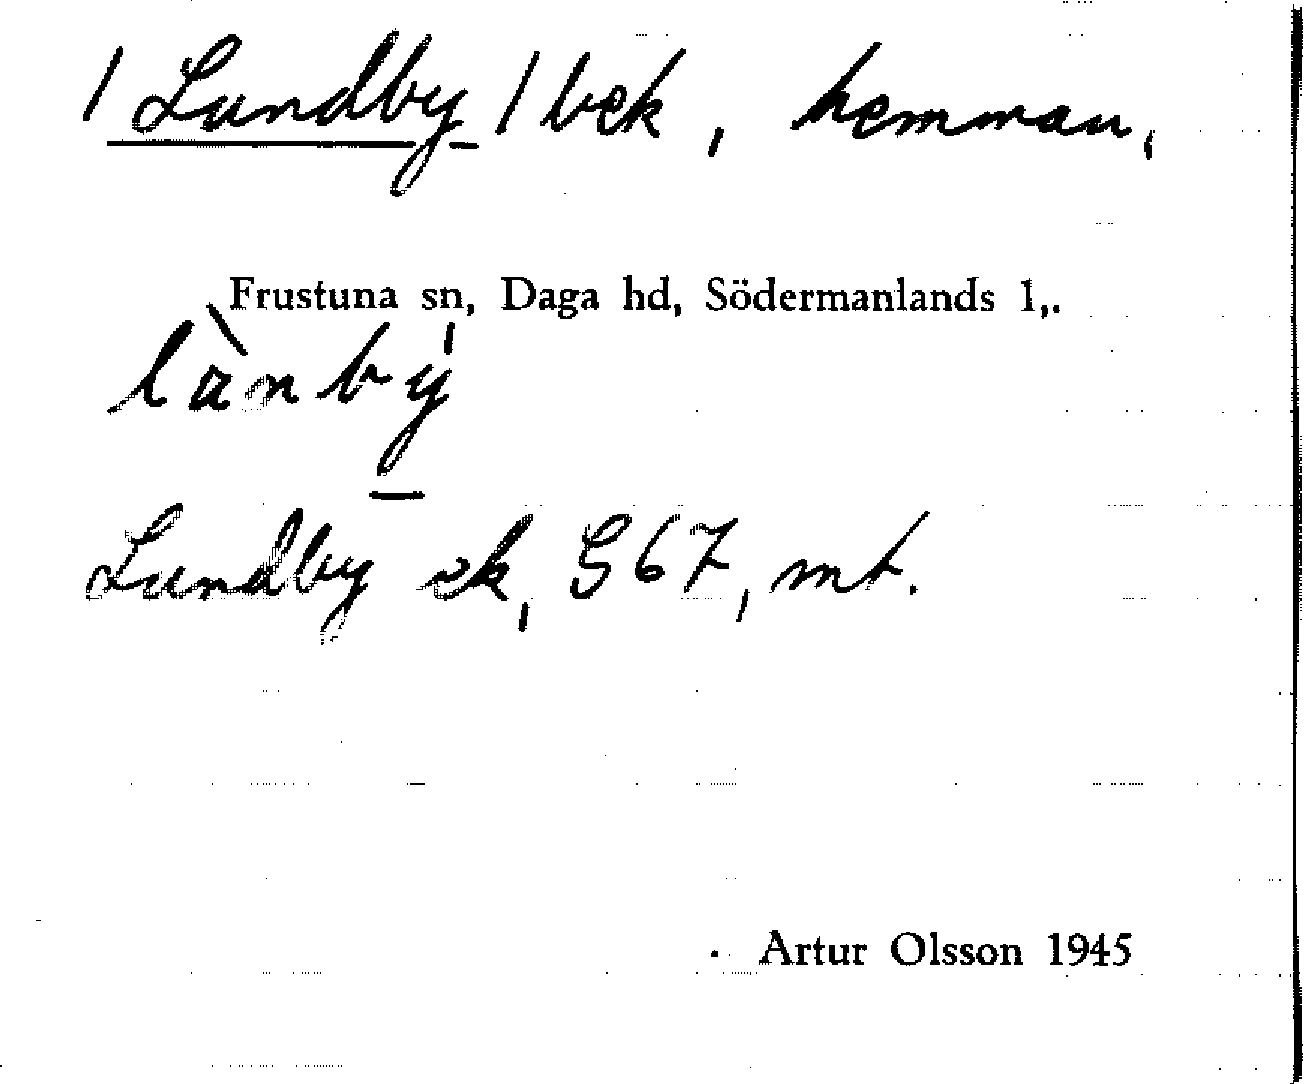 / Lundby / bek, hemman,
Frustuna sn, Daga hd, Södermanlands l,.
lànbý
Lundby ek, G67, mt.
Artur Olsson 1945